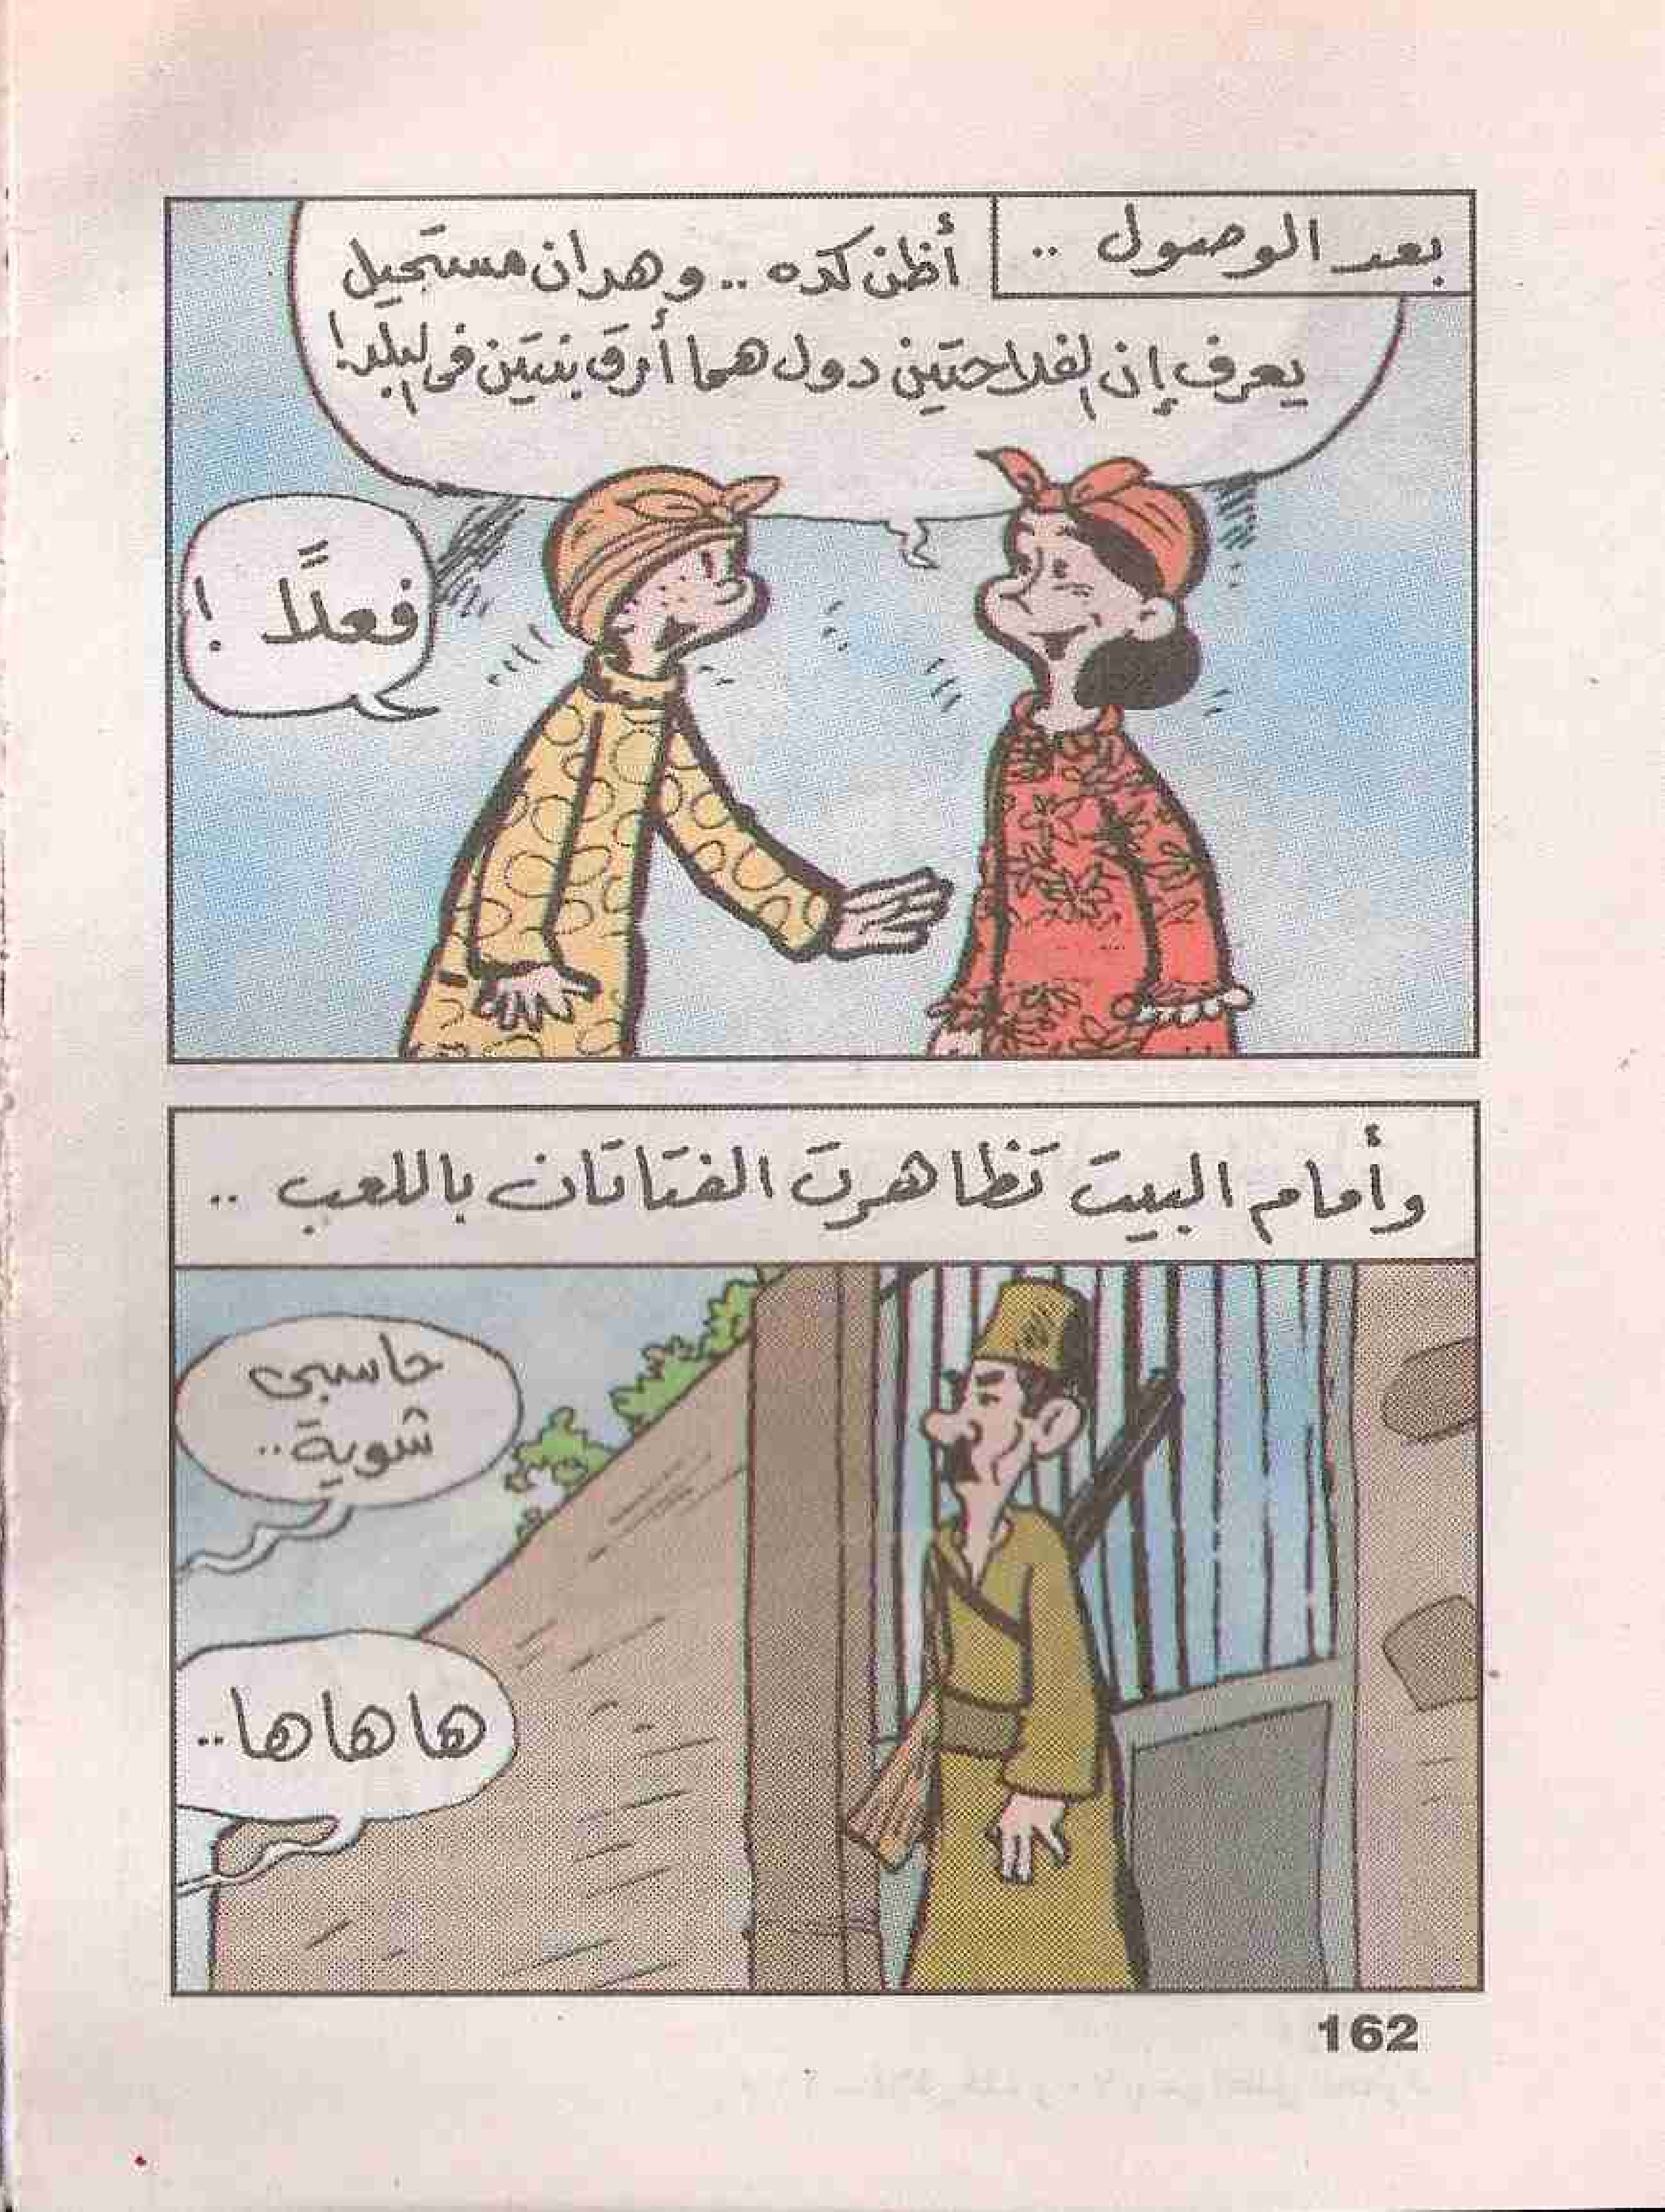 بعد الوصول ..
أظن كده .. وهدان مستحيل
يعرف إن الفلاحتين دول هما أرق بنتين فى البلد!
فعلًا !
وأمام البيت تظاهرت الفتاتان باللعب ..
حاسبى
شوية ..
ها ها ها ..
162